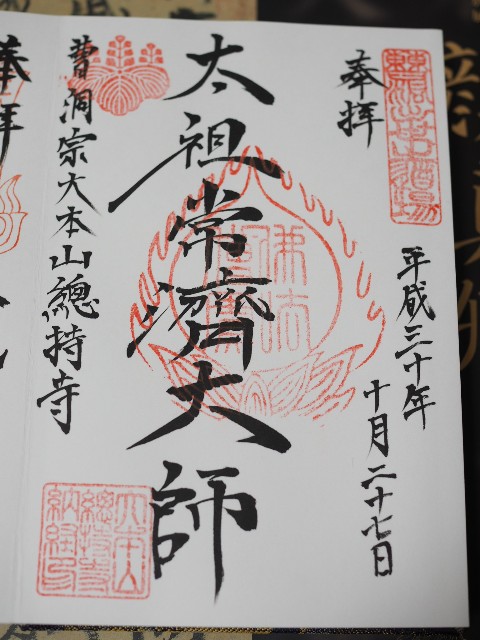 奉拝
平成三十年
十月二十七日
太祖常濟大師
曹洞宗大本山總持寺
大本山
總持寺
納経印
奉拝